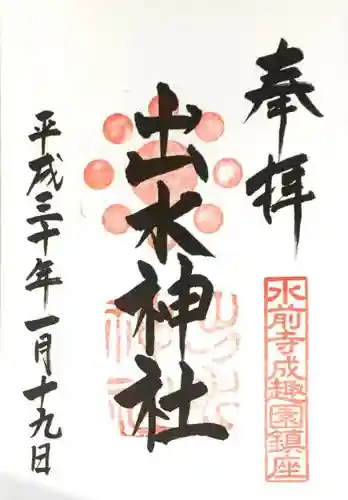 奉拝
水前寺成趣園鎮座
出水神社
平成三十年一月十九日